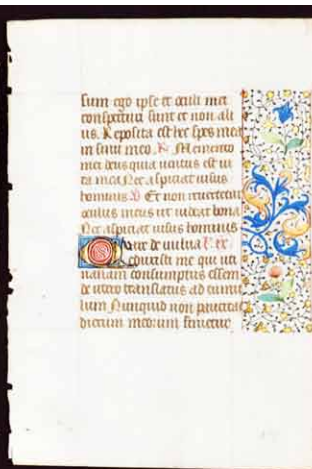 sum ego ipse et oculi mei
conspecturi sunt et non ali
us. Reposita est hec spes mea
in sinu meo. R. Memento
mei deus quia ventus est vi
ta mea Nec aspiciat visus
hominis V Et non revertetur
oculus meus ut videat bona
Nec aspiciat visus hominis
Quare de vulva
eduxisti me qui uti
nam consumptus essem
de utero translatus ad tumu
lum Nunquid non paucitas
dierum meorum finietur